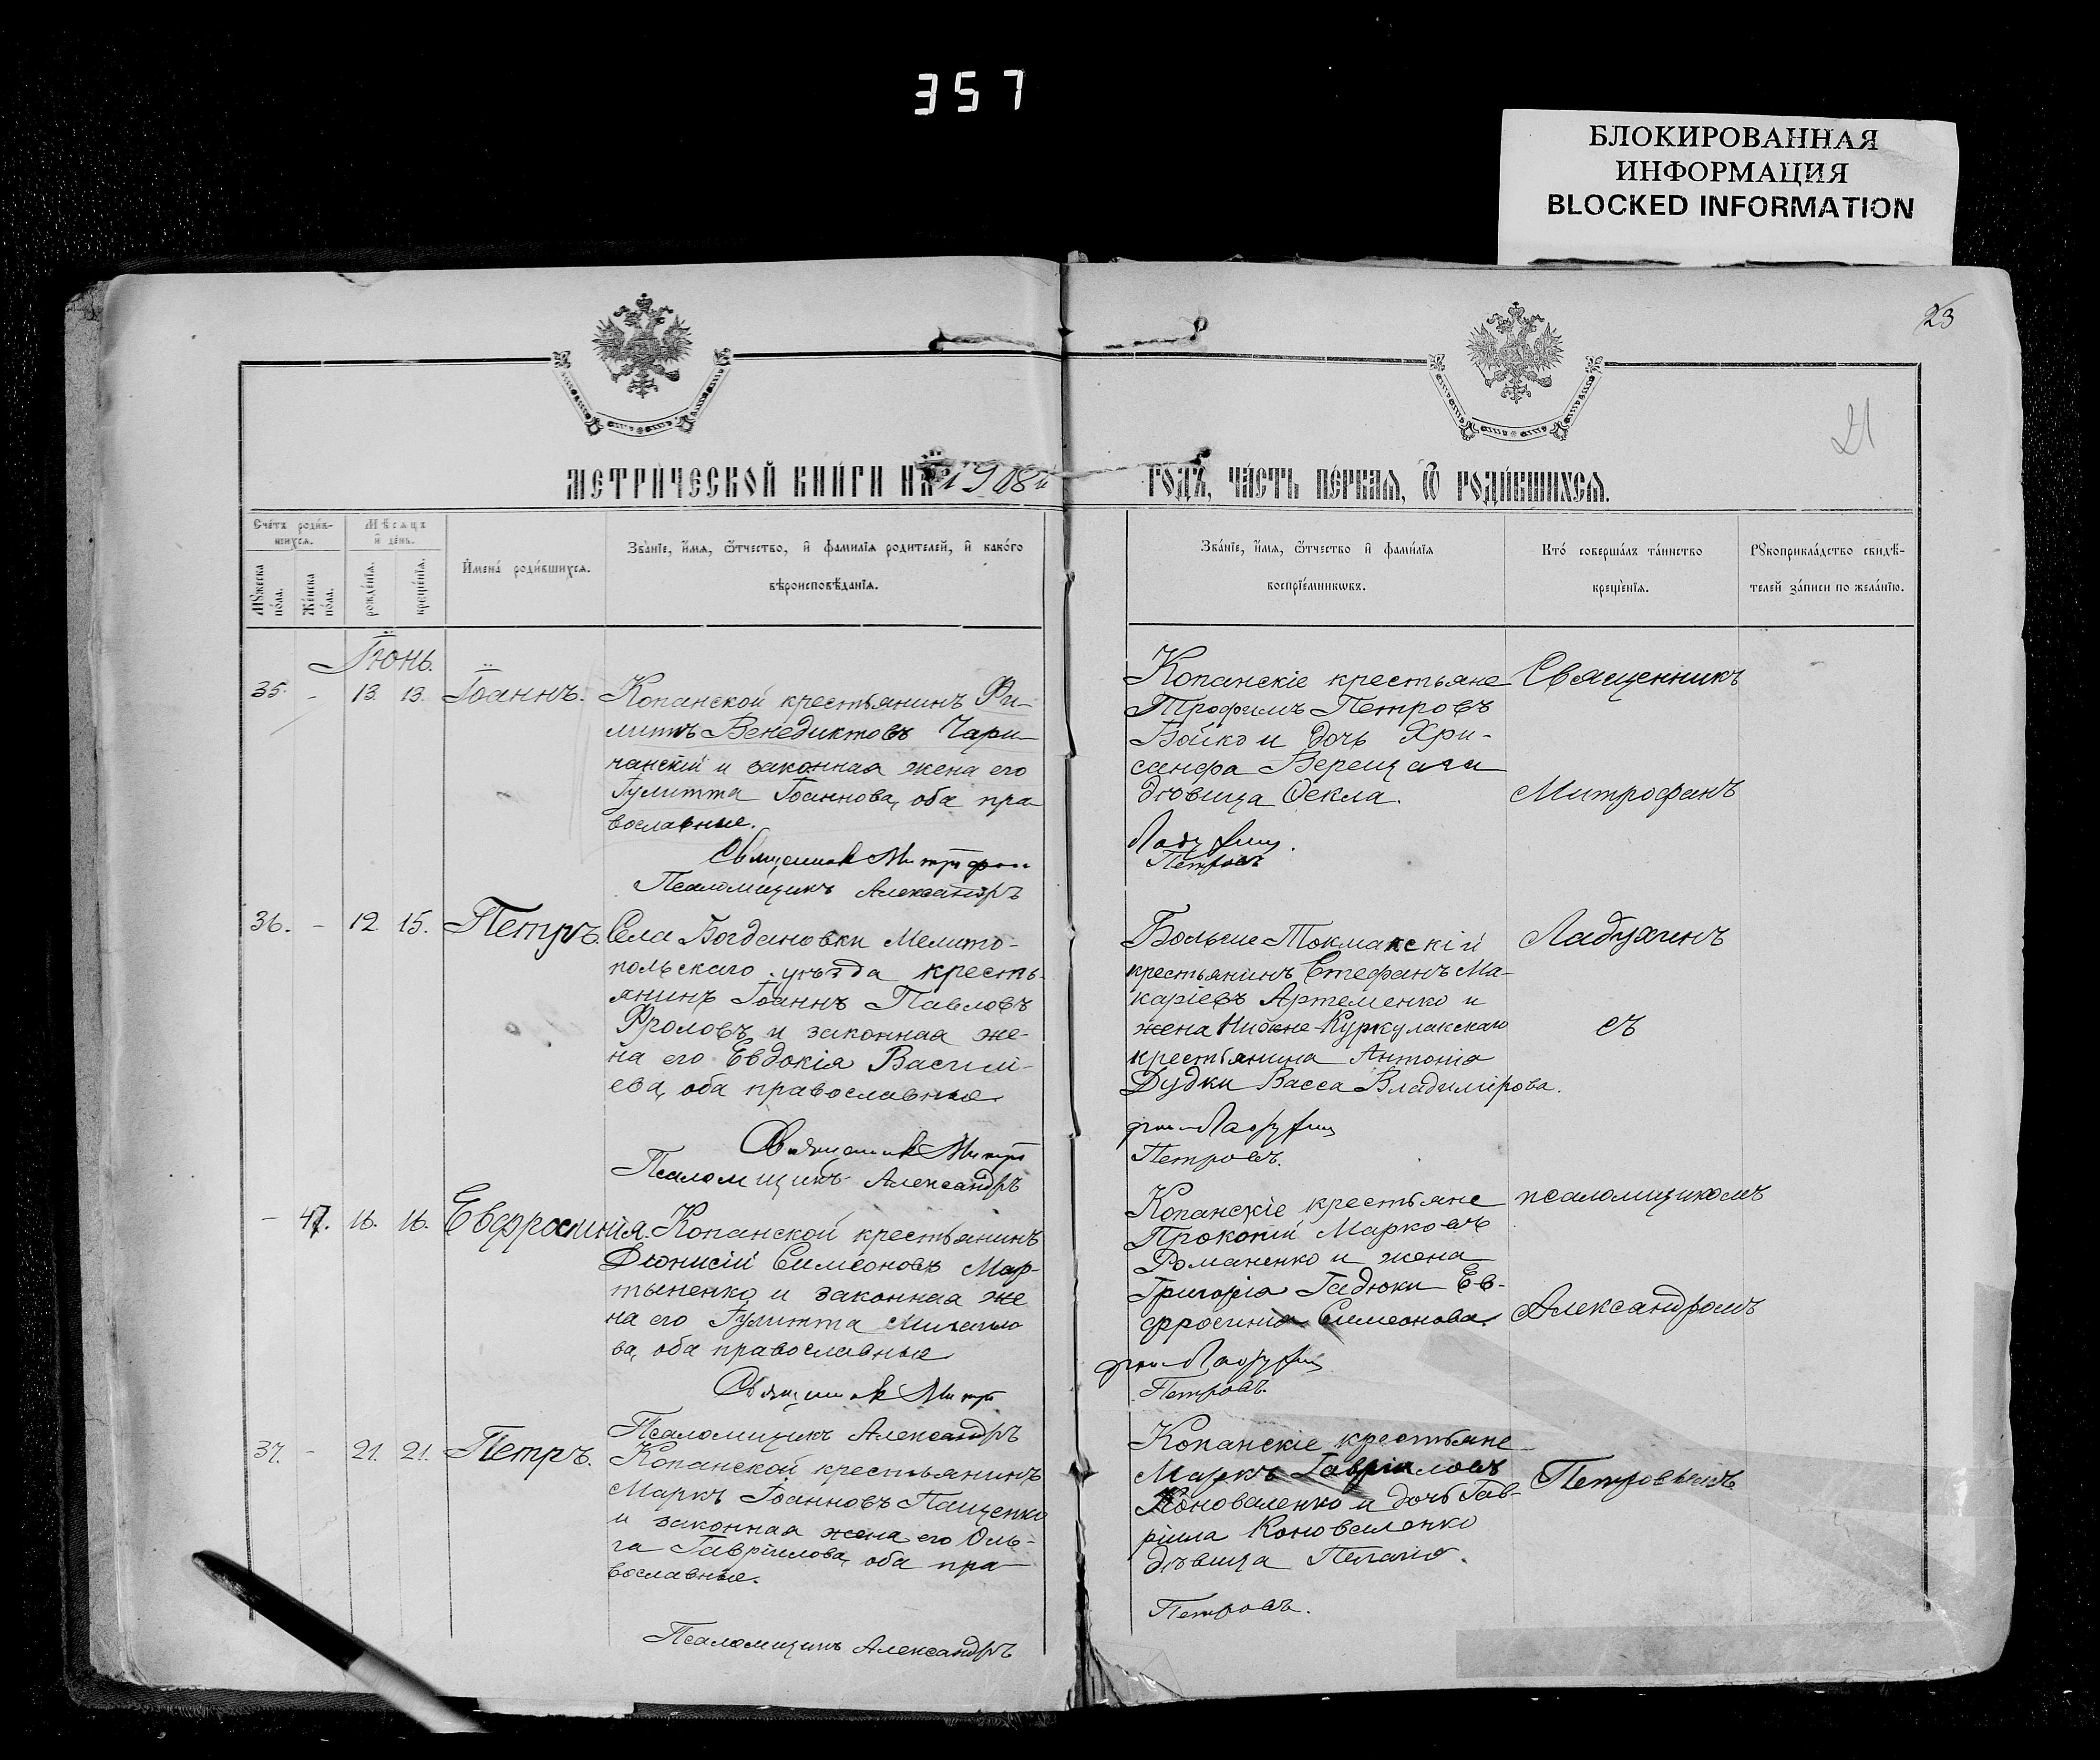 357
БЛОКИРОВАННАЯ
ИНФОРМАЦИЯ
BLOCKED INFORMATION
23
21
МЕТРИЧЕСКОЙ КНИГИ НА 1908й
ГОДЪ, ЧАСТЬ ПЕРВАЯ, Ѿ РОДИВШИХСЯ.
Счетъ родив-
шихся.
Мѣсяцъ
и день.
Мꙋжеска
пола.
Женска
пола.
рожденія.
крещенія.
Имена родившихся.
Званіе, имя, ѿтчество, и фамилія родителей, и какого
вѣроисповѣданія.
Званіе, имя, ѿтчество и фамилія
воспріемникѡвъ.
Кто совершалъ таинство
крещенія.
Рꙋкоприкладство свидѣ-
телей записи по желанію.
Іюнь.
35. - 13. 13. Іоаннъ.
Копанской крестьянинъ Фи-
литъ Венедиктовъ Чари-
чанскій и законная жена его
Іулитта Іоаннова, оба пра-
вославные.
Священникъ Митрофан
Псаломщикъ Александръ
Копанскіе крестьяне
Трофимъ Петровъ
Бойко и дочь Хри-
санфа Верещаги
дѣвица Ѳекла.
Ладухин.
Петровъ
Священникъ
Митрофанъ
36. - 12 15. Петръ.
Села Богдановки Мелито-
польскаго уѣзда кресть-
янинъ Іоаннъ Павловъ
Фроловъ и законная же-
на его Евдокія Васили-
ева, оба православные
Священникъ Митро
Псаломщикъ Александръ
Больше-Токмакскій
крестьянинъ Стефанъ Ма-
каріевъ Артеменко и
жена Нижне-Куркулакскаго
крестьянина Антонія
Дудки Васса Владимірова.
фан Ладухин
Петровъ.
Ладухинъ
съ
- 47. 16. 16. Евфросинія.
Копанской крестьянинъ
Діонисій Симеоновъ Мар-
тыненко и законная же
на его Іулитта Михаило
ва, оба православные
Священникъ Митро
Псаломщикъ Александръ
Копанскіе крестьяне
Прокопій Марковъ
Романенко и жена
Григорія Гадюки Ев-
фросинія Симеонова.
фан Ладухин
Петровъ.
псаломщикомъ
Александромъ
37. - 21. 21. Петръ.
Копанской крестьянинъ
Маркъ Іоанновъ Пащенко
и законная жена его Оль-
га Гавріилова, оба пра-
вославные.
Псаломщикъ Александръ
Копанскіе крестьяне
Маркъ Гавріиловъ
Коноваленко и дочь Гав-
ріила Коноваленко
дѣвица Пелагія.
Петровъ.
Петровымъ